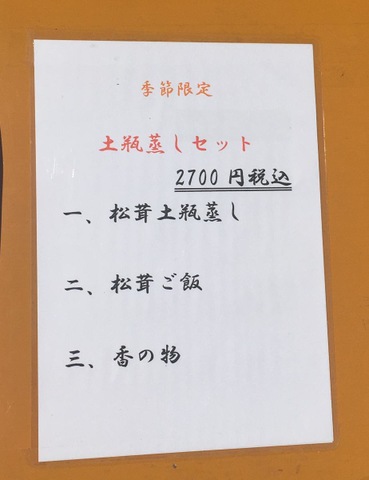 季節限定
土瓶蒸しセット
2700円税込
一、松茸土瓶蒸し
二、松茸ご飯
三、香の物